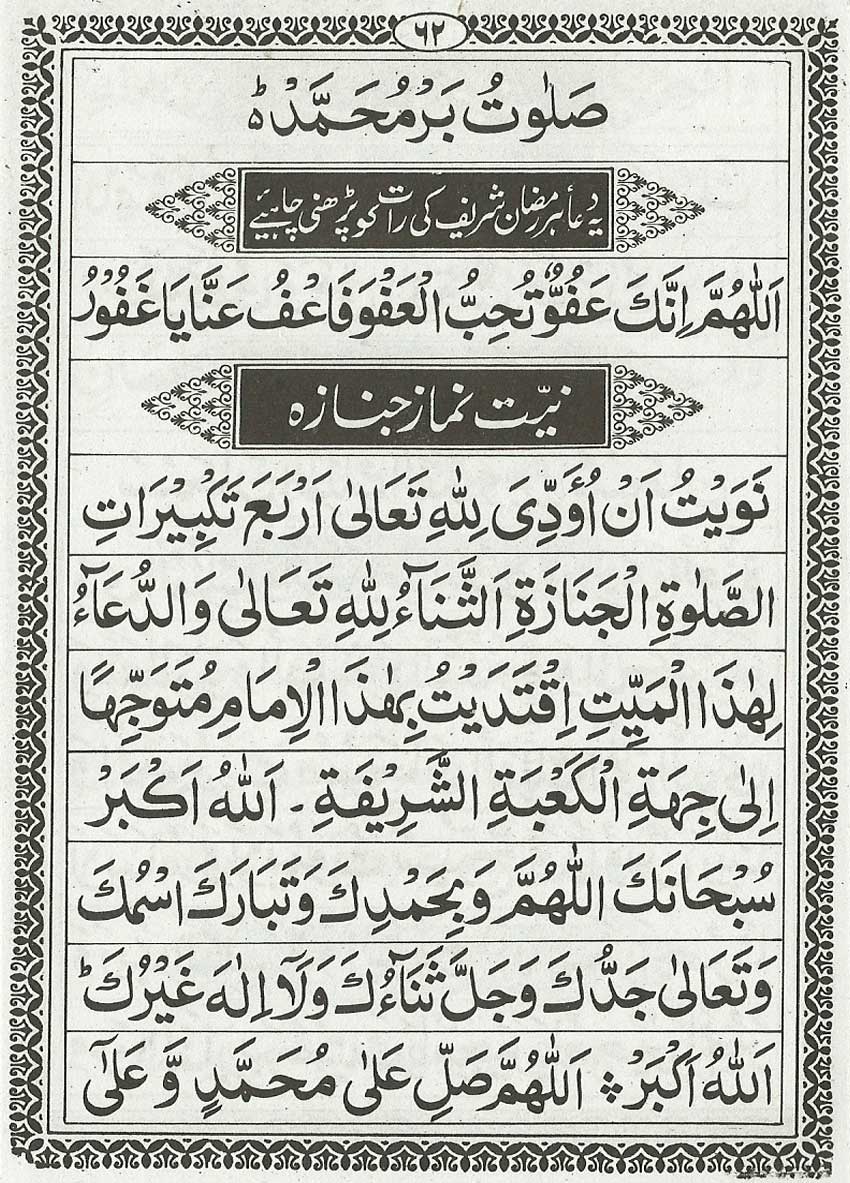 ٦٢
صَلٰوتُ بَرْ مُحَمَّدْ ؕ
یہ دعأ ہر رمضان شریف کی رات کو پڑھنی چاہیئے
اَللّٰهُمَّ اِنَّكَ عَفُوٌّ تُحِبُّ الْعَفْوَ فَاعْفُ عَنَّا يَا غَفُوْرُ
نیّت نماز جنازہ
نَوَيْتُ اَنْ اُؤَدِّىَ لِلّٰهِ تَعَالٰى اَرْبَعَ تَكْبِيْرَاتِ
الصَّلٰوةِ الْجَنَازَةِ اَلثَّنَآءُ لِلّٰهِ تَعَالٰى وَالدُّعَآءُ
لِهٰذَا الْمَيِّتِ اِقْتَدَيْتُ بِهٰذَا الْاِمَامِ مُتَوَجِّهًا
اِلٰى جِهَةِ الْكَعْبَةِ الشَّرِيْفَةِ ـ اَللّٰهُ اَكْبَرْ
سُبْحَانَكَ اللّٰهُمَّ وَبِحَمْدِكَ وَتَبَارَكَ اسْمُكَ
وَتَعَالٰى جَدُّكَ وَجَلَّ ثَنَآءُكَ وَلَآ اِلٰهَ غَيْرُكَ ؕ
اَللّٰهُ اَكْبَرْ ۞ اَللّٰهُمَّ صَلِّ عَلٰى مُحَمَّدٍ وَّ عَلٰٓى